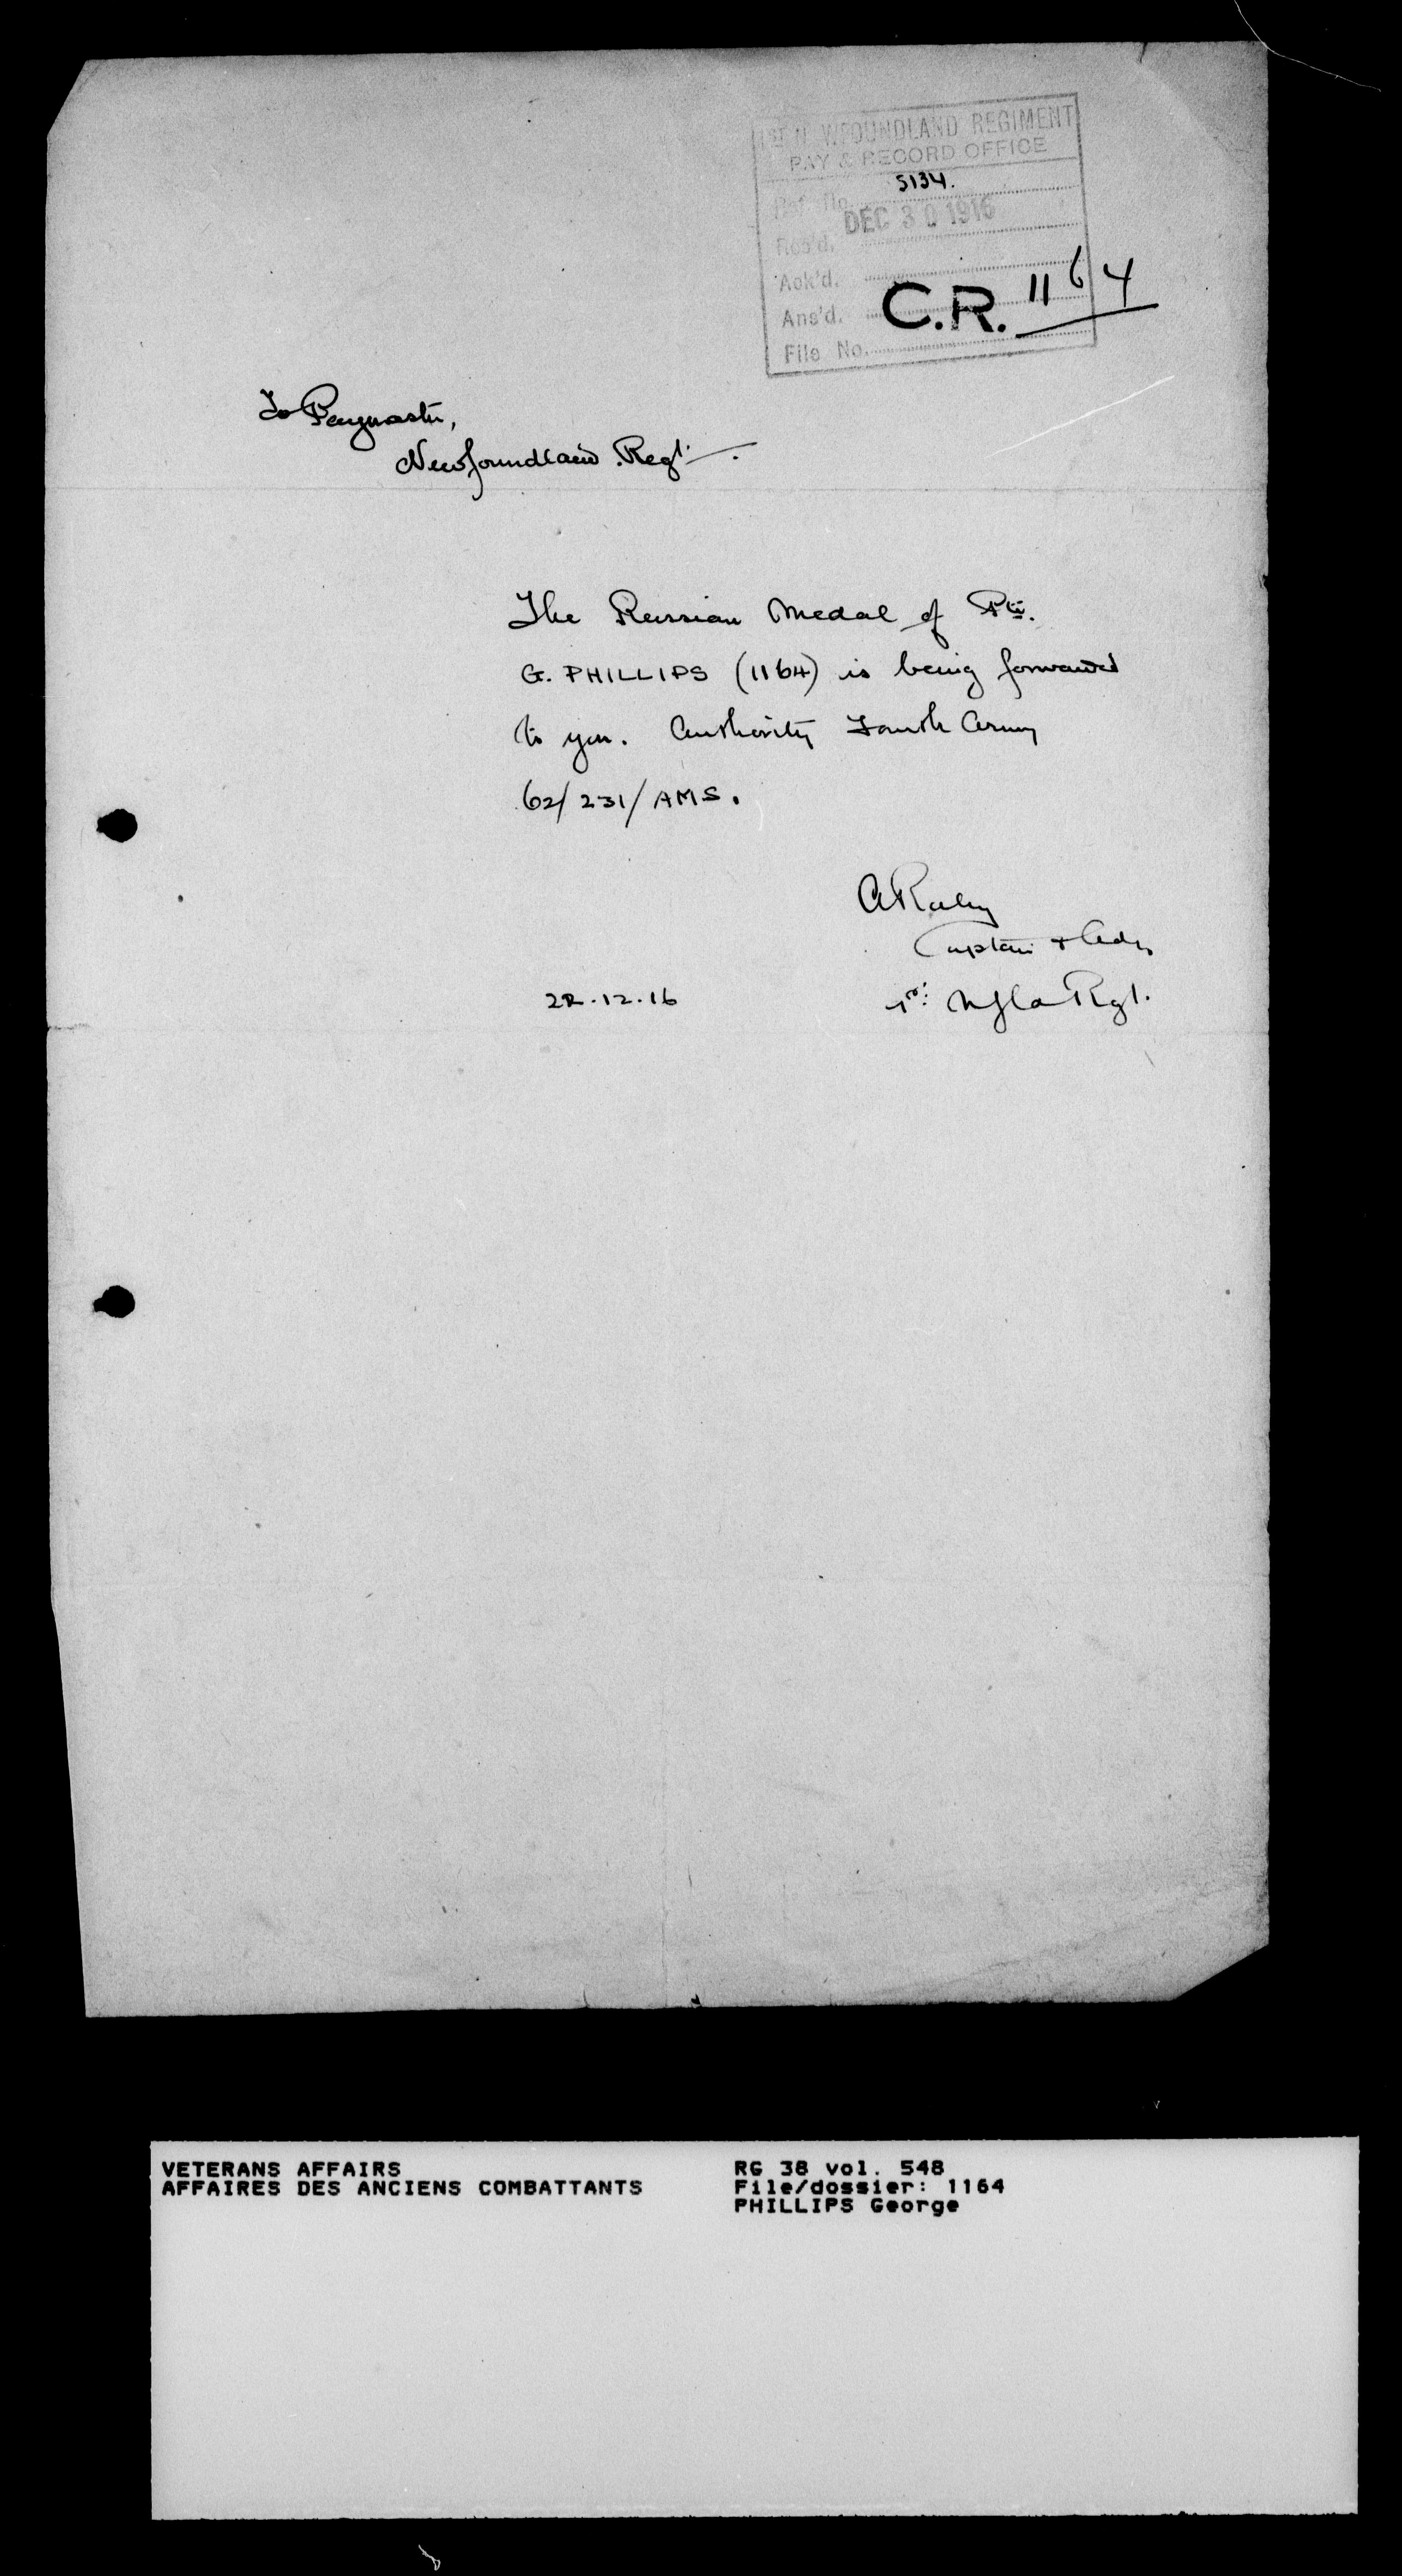 1st NEWFOUNDLAND REGIMENT
PAY & RECORD OFFICE
Ref. No. 5134.
Rec'd. DEC 30 1916
Ack'd.
Ans'd.
File No.
C.R. 1164
To Paymaster,
Newfoundland Regt.
The Russian Medal of Pte.
G. PHILLIPS (1164) is being forwarded
to you. Authority Fourth Army
62/231/AMS.
Captain & Adj.
22.12.16
1st Nfld Regt.
VETERANS AFFAIRS
AFFAIRES DES ANCIENS COMBATTANTS
RG 38 vol. 548
File/dossier: 1164
PHILLIPS George